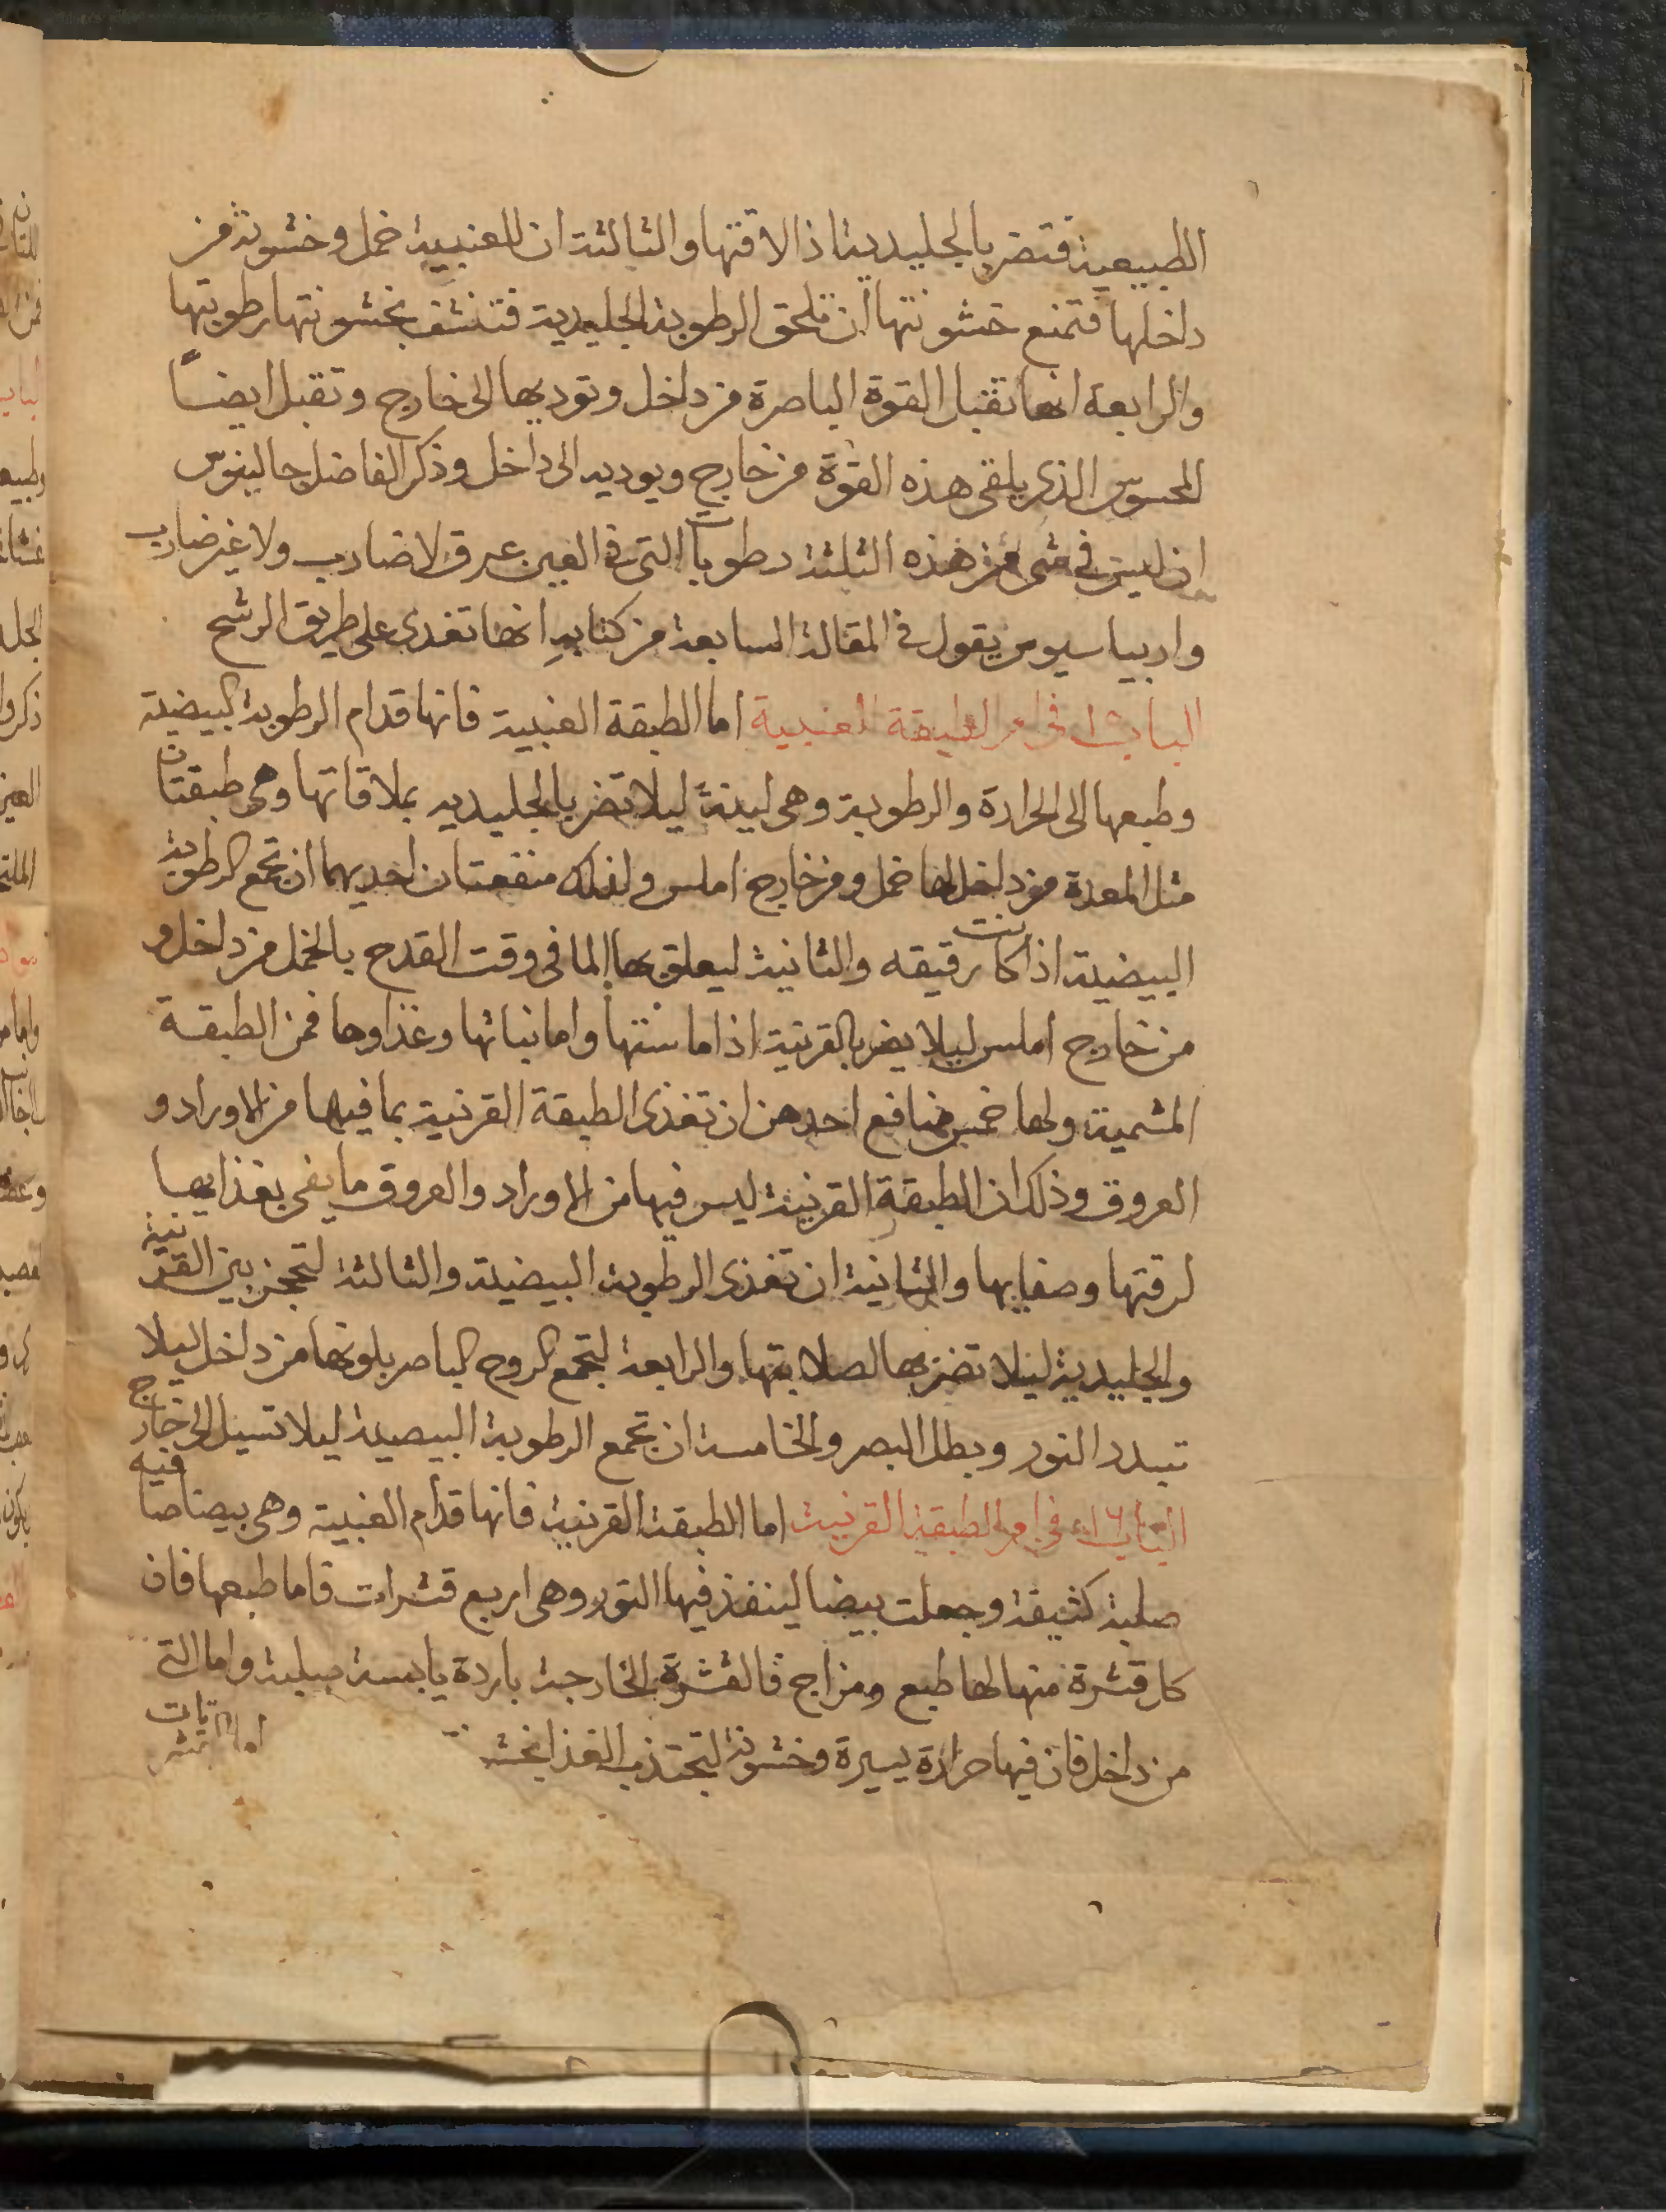 الطبيعية فتضر بالجليدية اذا لاقتها والثالثة ان للعنبية خمل وخشونة من
داخلها فتمنع خشونتها ان تلحق الرطوبة الجليدية فتنشف بخشونتها رطوبتها
والرابعة انها تقبل القوة الباصرة من داخل وتوديها الى خارج وتقبل ايضاً
المحسوس الذى يلقى هذه القوة من خارج ويوديه الى داخل وذكر الفاضل جالينوس
ان ليس فى شى من هذه الثلثة رطوبات التى فى العين عرق لا ضارب ولا غير ضارب
واريباسيوس يقول فى المقالة السابعة من كتابه انها تغذى على طريق الرشح
الباب فى امر الطبقة العنبية اما الطبقة العنبية فانها قدام الرطوبة البيضية
وطبعها الى الحرارة والرطوبة وهى لينة ليلا تضر بالجليديه بملاقاتها وهى طبقتان
مثل المعدة من داخلها خمل ومن خارج املس ولذلك منفعتان احديهما ان تجمع الرطوبة
البيضية اذا كانت رقيقه والثانية ليعلق بها الما فى وقت القدح بالخمل من داخل و
من خارج املس ليلا يضر بالقرنية اذا ماستها واما نباتها وغذاوها فمن الطبقة
المشمية ولها خمس منافع احدهن ان تغذى الطبقة القرنية بما فيها من الاوراد و
العروق وذلك ان الطبقة القرنية ليس فيها من الاوراد والعروق ما يفى بغذايها
لرقتها وصفايها والثانية ان تغذى الرطوبة البيضية والثالثة لتحجز بين القرنية
والجليدية ليلا تضر بها لصلابتها والرابعة لتجمع الروح الباصر بلونها من داخل ليلا
تبدد النور وبطل البصر والخامسة ان تجمع الرطوبة البيضية ليلا تسيل الى خارج
الباب ١٦ فى امر الطبقة القرنية اما الطبقة القرنية فانها قدام العنبية وهى بيضا صافيه
صلبة كثيفة وجعلت بيضا لينفذ فيها النور وهى اربع قشرات فاما طبعها فان
كل قشرة منها لها طبع ومزاج فالقشرة الخارجة باردة يابسة صلبة واما التى
من داخل فان فيها حرارة يسيرة وخشونة لتجتذب الغذا بخشـ